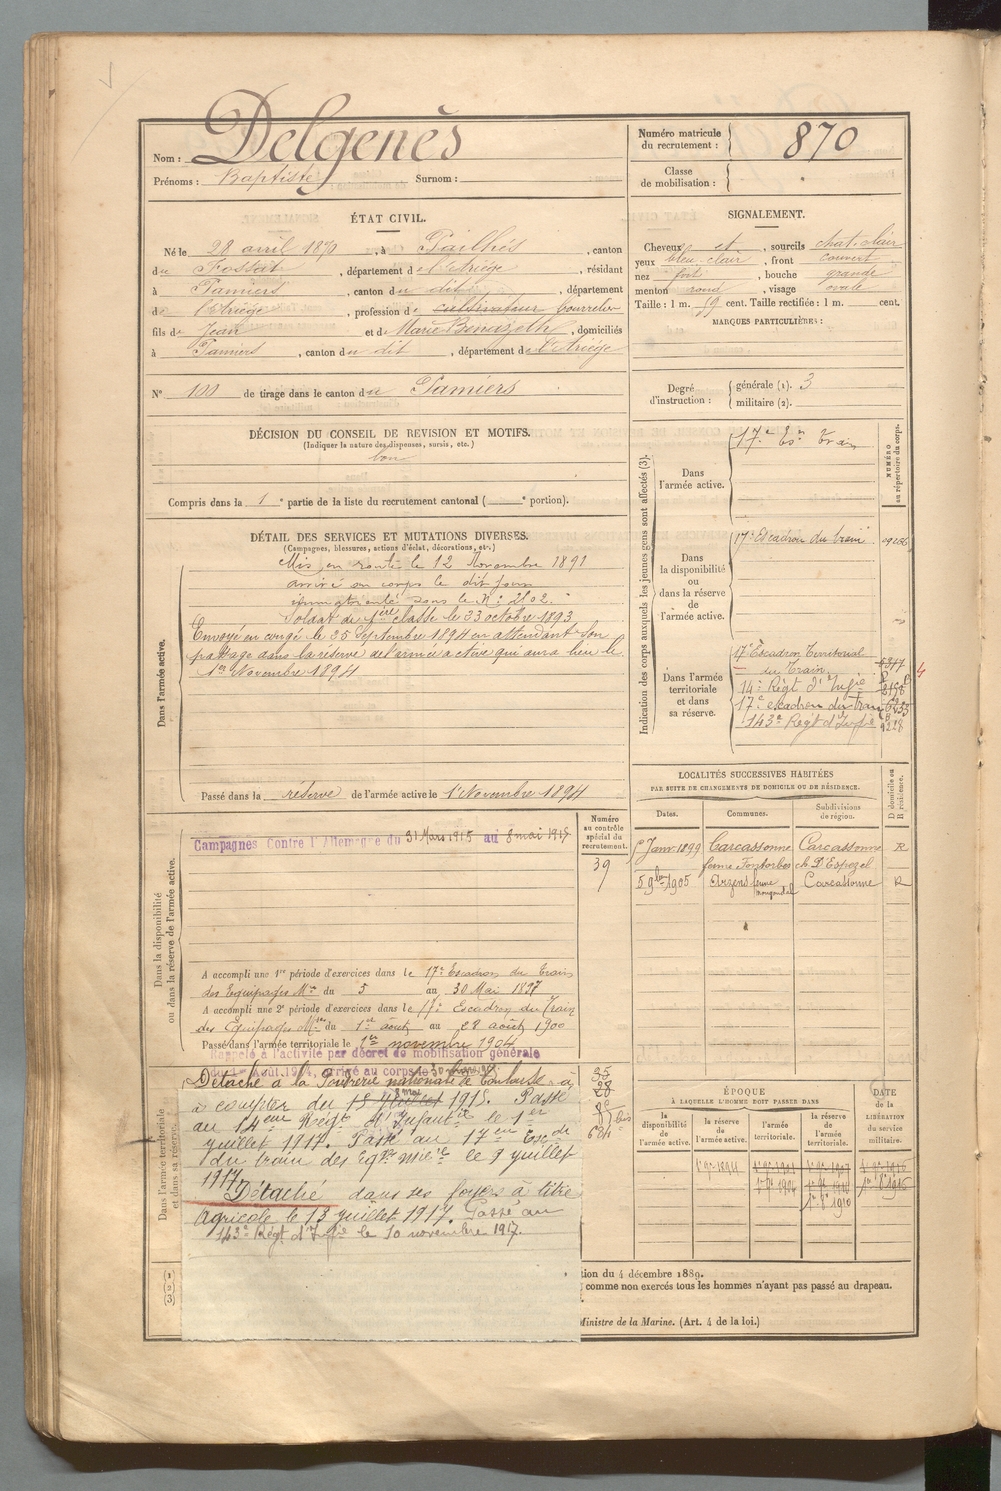 Nom : Delgenès
Prénoms : Baptiste Surnom :
Numéro matricule du recrutement : 870
Classe de mobilisation :
ÉTAT CIVIL.
Né le 28 avril 1870, à Pailhés, canton
du Fossat, département de l'Ariège, résidant
à Pamiers, canton du dit, département
de l'Ariège, profession de cultivateur bourrelier
fils de Jean et de Marie Benazeth, domiciliés
à Pamiers, canton du dit, département de l'Ariège
N° 100 de tirage dans le canton du Pamiers
SIGNALEMENT.
Cheveux et, sourcils chat. clair
yeux bleu-clair, front couvert
nez fort, bouche grande
menton rond, visage ovale
Taille : 1 m. 59 cent. Taille rectifiée : 1 m. cent.
MARQUES PARTICULIÈRES :
Degré d'instruction : générale (1). 3
militaire (2).
DÉCISION DU CONSEIL DE REVISION ET MOTIFS.
(Indiquer la nature des dispenses, sursis, etc.)
bon
Compris dans la 1e partie de la liste du recrutement cantonal ( e portion).
DÉTAIL DES SERVICES ET MUTATIONS DIVERSES.
(Campagnes, blessures, actions d'éclat, décorations, etc.)
Dans l'armée active.
Mis en route le 12 Novembre 1891
arrivé au corps le dit jour
immatriculé sous le N°
Soldat de 1ère classe le octobre 1893
Envoyé en congé le 25 Septembre 1894 en attendant son
passage dans la réserve de l'armée active qui aura lieu le
1er Novembre 1894
Passé dans la réserve de l'armée active le 1er Novembre 1894
Indication des corps auxquels les jeunes gens sont affectés (3).
NUMÉRO au répertoire du corps.
Dans l'armée active.
17e Esn Train
Dans la disponibilité ou dans la réserve de l'armée active.
17e Escadron du train
Dans l'armée territoriale et dans sa réserve.
17e Escadron Territorial
du Train
14e Régt d'Infie
17e escadron du train
143e Régt d'Infie
9228
LOCALITÉS SUCCESSIVES HABITÉES
PAR SUITE DE CHANGEMENTS DE DOMICILE OU DE RÉSIDENCE.
D domicile ou R résidence.
Dates. Communes. Subdivisions de région.
Janv. 1899 Carcassonne Carcassonne R
ferme Fontorbes ch. D'Espezel
5 9bre 1905 Arzens ferme Carcassonne R
Dans la disponibilité ou dans la réserve de l'armée active.
Numéro au contrôle spécial du recrutement.
39
Campagnes Contre l'Allemagne du 31 Mars 1915 au 8 mai 1915
A accompli une 1re période d'exercices dans le 17e Escadron du Train
des Equipages Mres du 5 au 30 Mai 1897
A accompli une 2e période d'exercices dans le 17e Escadron du Train
des Equipages Mres du 1er août au 28 août 1900
Passé dans l'armée territoriale le 1er novembre 1904
Rappelé à l'activité par décret de mobilisation générale
du 1er Août 1914, arrivé au corps le
Dans l'armée territoriale et dans sa réserve.
Détaché à la Poudrerie nationale de Toulouse à
à compter du 8 mai 1915. Passé
au 14eme Régt d'Infanterie le 1er
juillet 1917. Passé au 17eme Escon
du train des Eqges Mres le 9 juillet
1917.
Détaché dans ses foyers à titre
Agricole le 13 juillet 1917. Passé au
143e Régt d'Infie le 10 novembre 1917.
35
28
684
ÉPOQUE
À LAQUELLE L'HOMME DOIT PASSER DANS
DATE de la LIBÉRATION du service militaire.
la disponibilité de l'armée active. la réserve de l'armée active. l'armée territoriale. la réserve de l'armée territoriale.
1er 9bre 1894
1er 9bre 1904
1er 8bre 1910
(1)
(2)
(3)
tion du 4 décembre 1889.
comme non exercés tous les hommes n'ayant pas passé au drapeau.
Ministre de la Marine. (Art. 4 de la loi.)